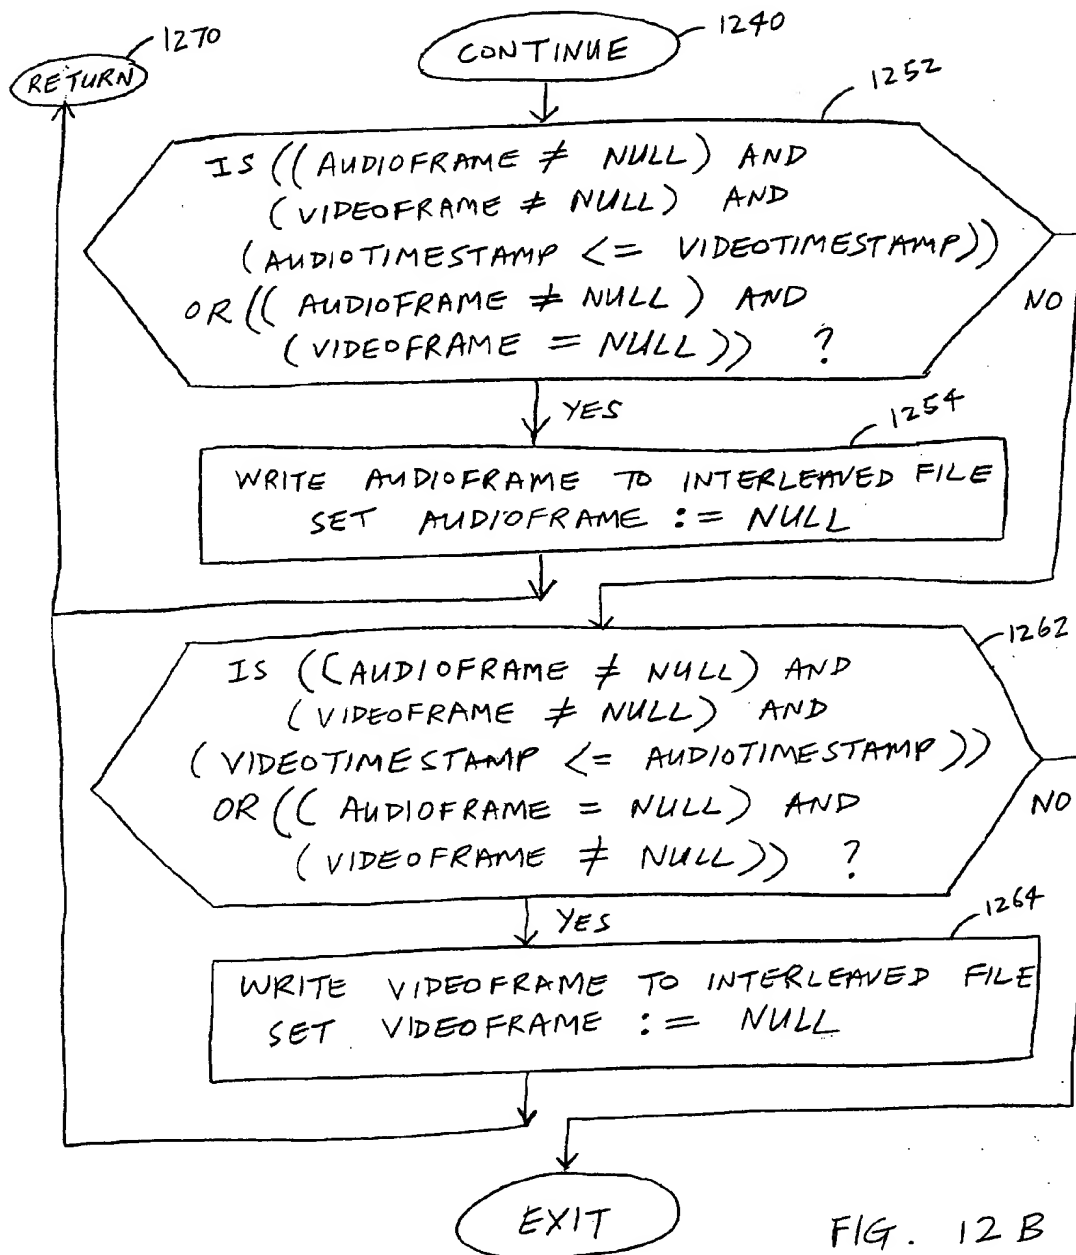 1270
RETURN
CONTINUE
1240
1252
IS ((AUDIOFRAME ≠ NULL) AND
(VIDEOFRAME ≠ NULL) AND
(AUDIOTIMESTAMP <= VIDEOTIMESTAMP))
OR ((AUDIOFRAME ≠ NULL) AND
(VIDEOFRAME = NULL)) ?
NO
YES
1254
WRITE AUDIOFRAME TO INTERLEAVED FILE
SET AUDIOFRAME := NULL
1262
IS ((AUDIOFRAME ≠ NULL) AND
(VIDEOFRAME ≠ NULL) AND
(VIDEOTIMESTAMP <= AUDIOTIMESTAMP))
OR ((AUDIOFRAME = NULL) AND
(VIDEOFRAME ≠ NULL)) ?
NO
YES
1264
WRITE VIDEOFRAME TO INTERLEAVED FILE
SET VIDEOFRAME := NULL
EXIT
FIG. 12B